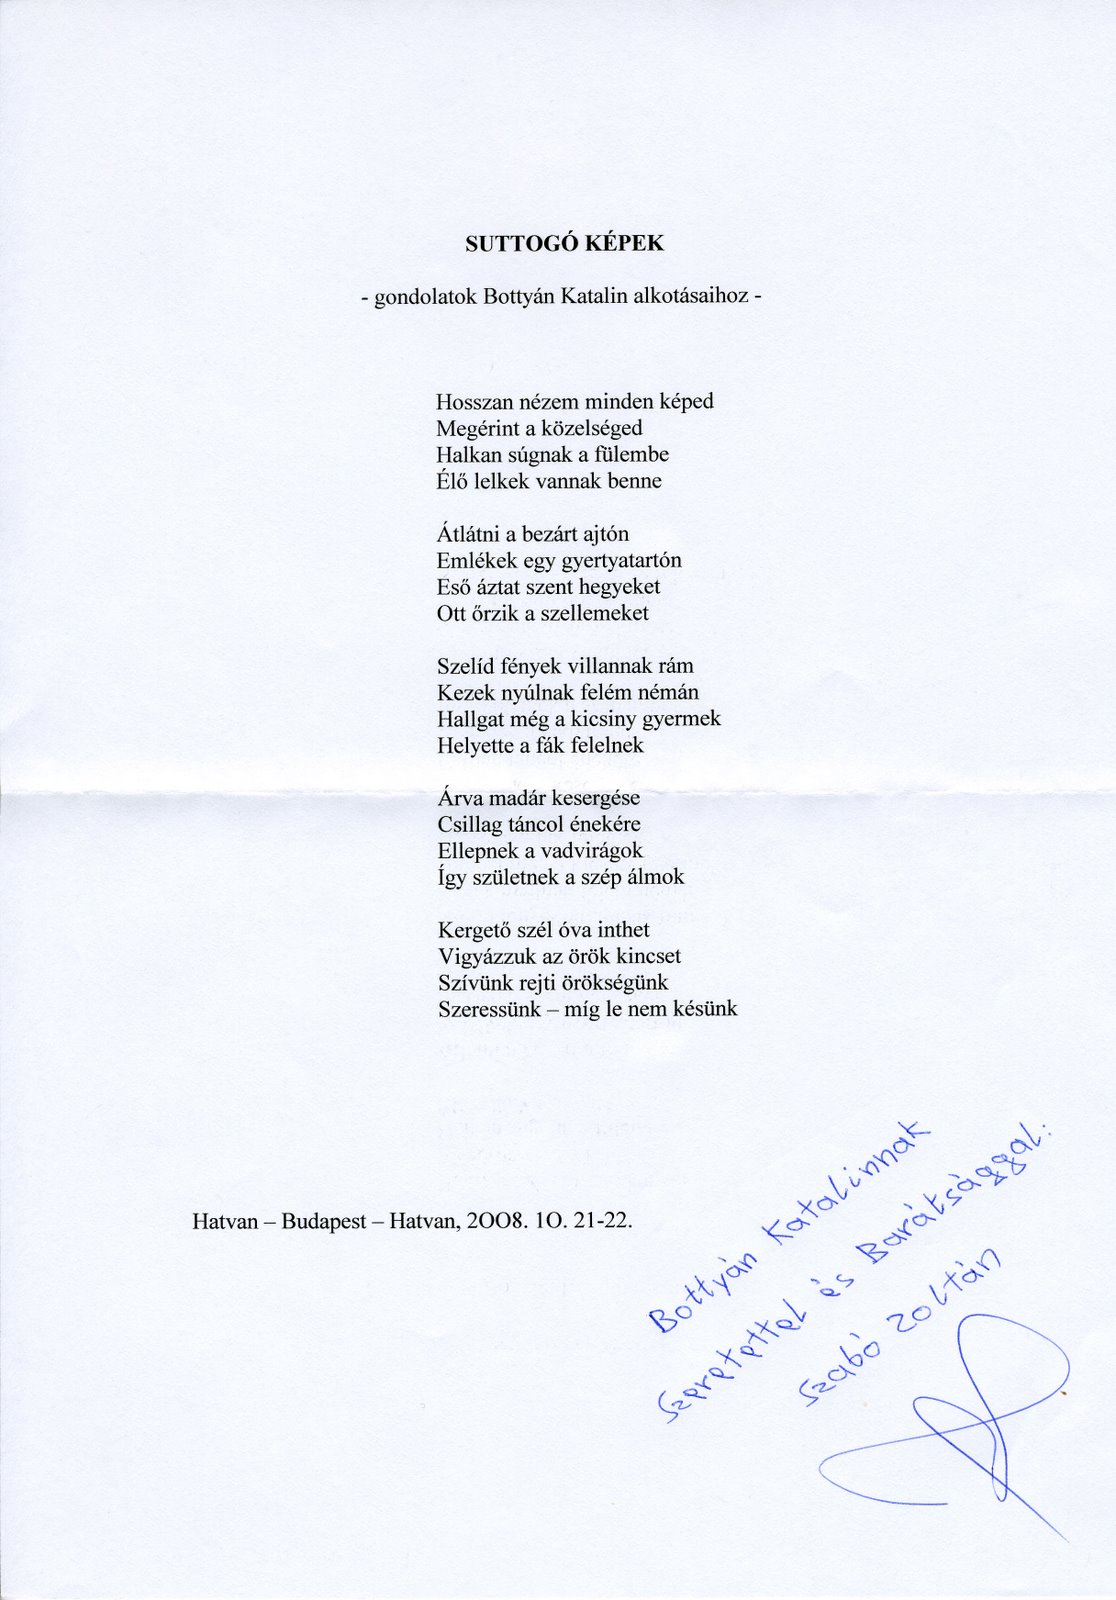 SUTTOGÓ KÉPEK
- gondolatok Bottyán Katalin alkotásaihoz -
Hosszan nézem minden képed
Megérint a közelséged
Halkan súgnak a fülembe
Élő lelkek vannak benne
Átlátni a bezárt ajtón
Emlékek egy gyertyatartón
Eső áztat szent hegyeket
Ott őrzik a szellemeket
Szelíd fények villannak rám
Kezek nyúlnak felém némán
Hallgat még a kicsiny gyermek
Helyette a fák felelnek
Árva madár kesergése
Csillag táncol énekére
Ellepnek a vadvirágok
Így születnek a szép álmok
Kergető szél óva inthet
Vigyázzuk az örök kincset
Szívünk rejti örökségünk
Szeressünk – míg le nem késünk
Hatvan – Budapest – Hatvan, 2OO8. 1O. 21-22.
Bottyán Katalinnak
Szeretettel és Barátsággal:
Szabó Zoltán